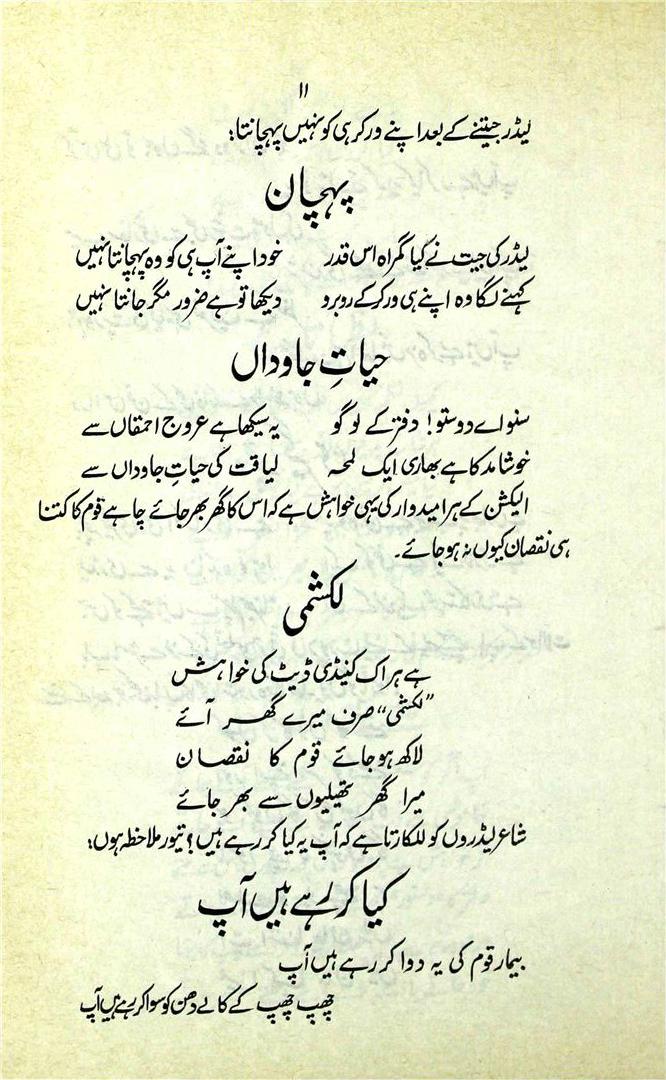 ۱۱
لیڈر جیتنے کے بعد اپنے ورکر ہی کو نہیں پہچانتا؛
پہچان
لیڈر کی جیت نے کیا گمراہ اس قدر خود اپنے آپ ہی کو وہ پہچانتا نہیں
کہنے لگا وہ اپنے ہی ورکر کے روبرو دیکھا تو ہے ضرور مگر جانتا نہیں
حیاتِ جاوداں
سنو اے دوستو! دفتر کے لوگو یہ سیکھا ہے عروجِ احمقاں سے
خوشامد کا ہے بھاری ایک لمحہ لیاقت کی حیاتِ جاوداں سے
الیکشن کے ہر امیدوار کی یہی خواہش ہے کہ اس کا گھر بھر جائے چاہے قوم کا کتنا
ہی نقصان کیوں نہ ہو جائے۔
لکشمی
ہے ہر اک کینڈی ڈیٹ کی خواہش
”لکشمی“ صرف میرے گھر آئے
لاکھ ہو جائے قوم کا نقصان
میرا گھر تھیلیوں سے بھر جائے
شاعر لیڈروں کو للکارتا ہے کہ آپ یہ کیا کر رہے ہیں؟ تیور ملاحظہ ہوں؛
کیا کر رہے ہیں آپ
بیمار قوم کی یہ دوا کر رہے ہیں آپ
چھپ چھپ کے کالے دھن کو سوا کر رہے ہیں آپ